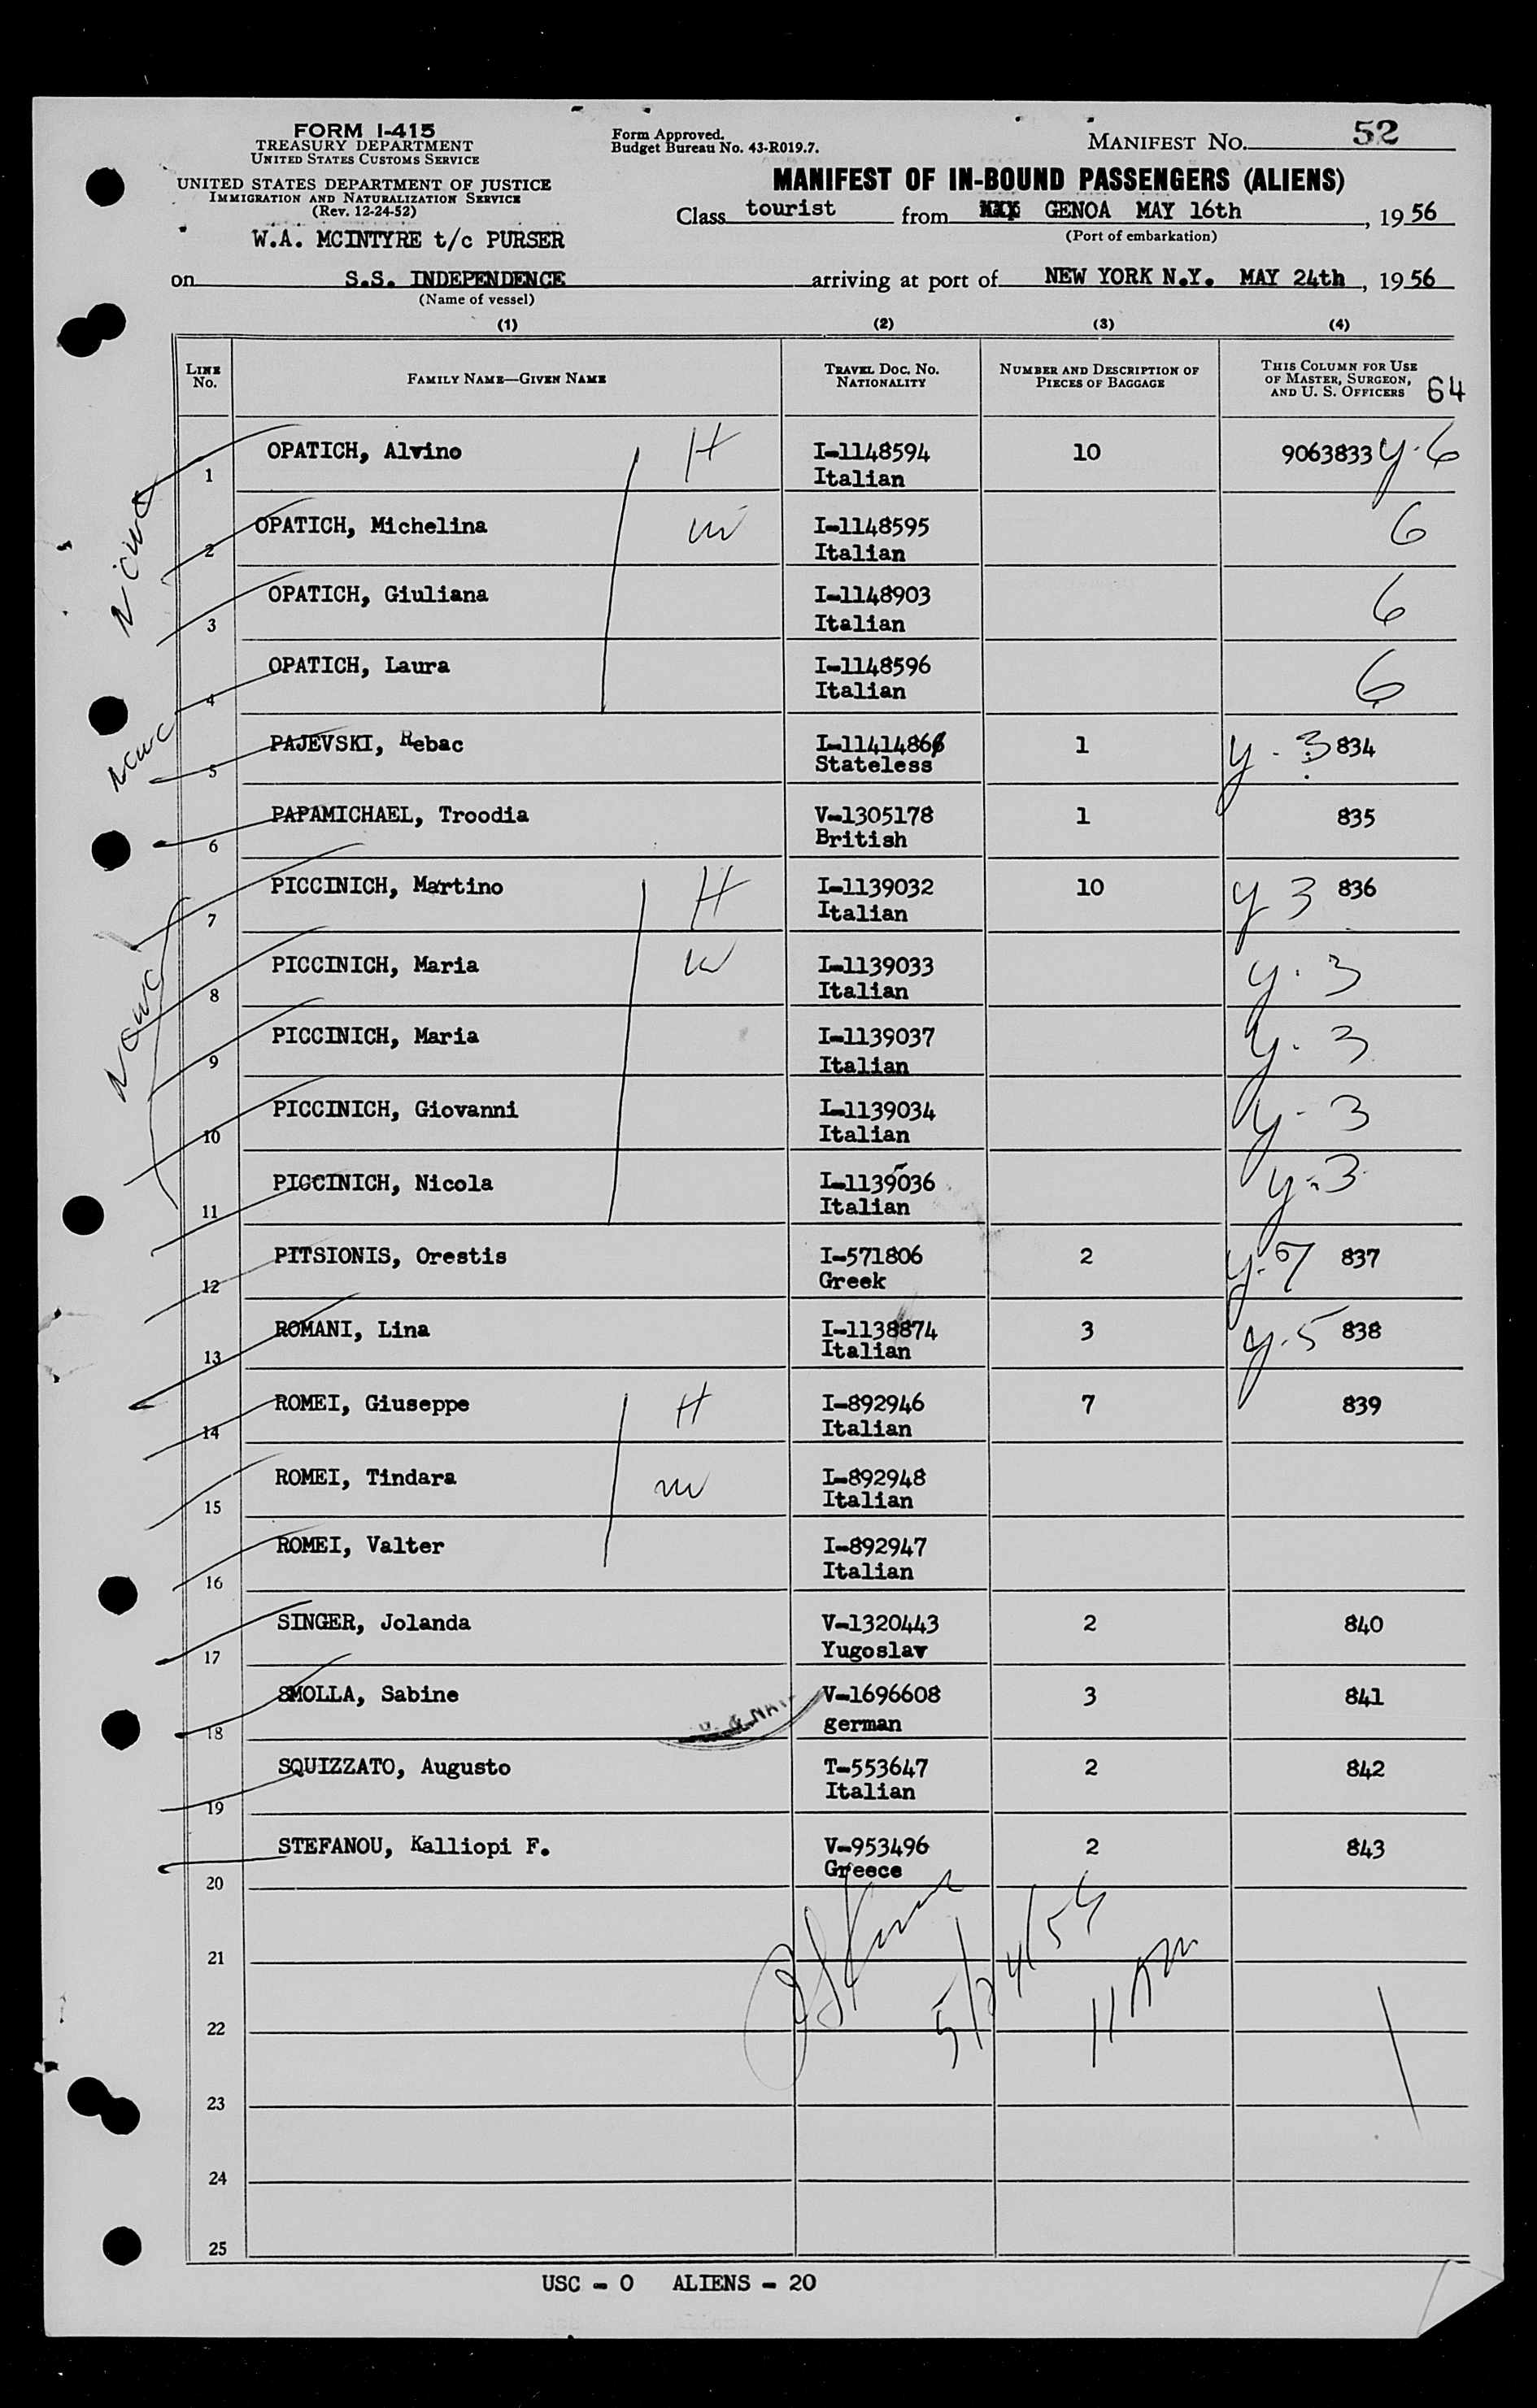 FORM I-415
TREASURY DEPARTMENT
UNITED STATES CUSTOMS SERVICE
UNITED STATES DEPARTMENT OF JUSTICE
IMMIGRATION AND NATURALIZATION SERVICE
(Rev. 12-24-52)
W.A. MCINTYRE t/c PURSER
Form Approved.
Budget Bureau No. 43-R019.7.
MANIFEST NO. 52
MANIFEST OF IN-BOUND PASSENGERS (ALIENS)
Class tourist from GENOA MAY 16th, 1956
(Port of embarkation)
on S.S. INDEPENDENCE arriving at port of NEW YORK N.Y. MAY 24th, 1956
(Name of vessel)
(1) (2) (3) (4)
LINE No. FAMILY NAME—GIVEN NAME TRAVEL DOC. NO. NATIONALITY NUMBER AND DESCRIPTION OF PIECES OF BAGGAGE THIS COLUMN FOR USE OF MASTER, SURGEON, AND U. S. OFFICERS 64
1 OPATICH, Alvino H I-1148594 10 9063833 y-6
Italian
2 OPATICH, Michelina W I-1148595 6
Italian
3 OPATICH, Giuliana I-1148903 6
Italian
4 OPATICH, Laura I-1148596 6
Italian
5 PAJEVSKI, Rebac I-11414866 1 y-3 834
Stateless
6 PAPAMICHAEL, Troodia V-1305178 1 835
British
7 PICCINICH, Martino H I-1139032 10 y 3 836
Italian
8 PICCINICH, Maria W I-1139033 y-3
Italian
9 PICCINICH, Maria I-1139037 y-3
Italian
10 PICCINICH, Giovanni I-1139034 y-3
Italian
11 PICCINICH, Nicola I-1139036 y-3
Italian
12 PITSIONIS, Orestis I-571806 2 837
Greek
13 ROMANI, Lina I-1138874 3 y-5 838
Italian
14 ROMEI, Giuseppe H I-892946 7 839
Italian
15 ROMEI, Tindara W I-892948
Italian
16 ROMEI, Valter I-892947
Italian
17 SINGER, Jolanda V-1320443 2 840
Yugoslav
18 SMOLLA, Sabine V-1696608 3 841
german
19 SQUIZZATO, Augusto T-553647 2 842
Italian
20 STEFANOU, Kalliopi F. V-953496 2 843
Greece
21
22
23
24
25
NCWC
NCWC
NCWC
5/24/56
11 AM
USC - 0 ALIENS - 20